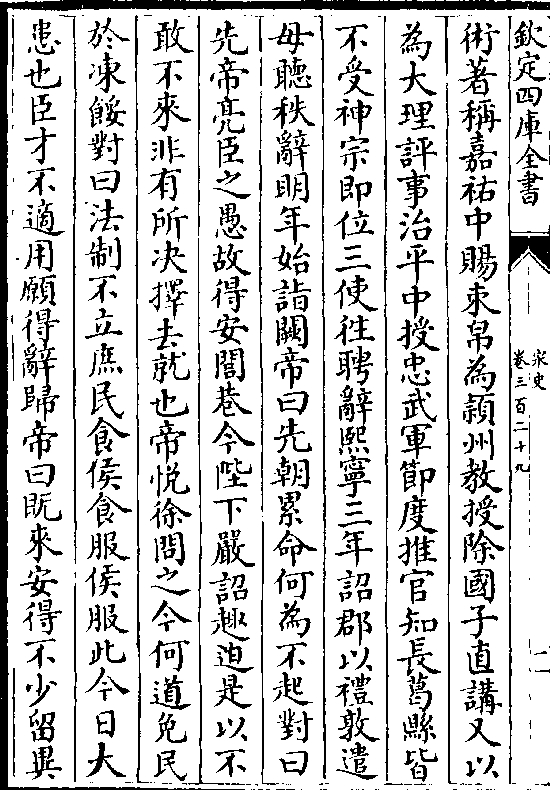 欽定四庫全書
宋史
卷三百二十九
二
術著稱嘉祐中賜束帛為潁州教授除國子直講又以
為大理評事治平中授忠武軍節度推官知長葛縣皆
不受神宗即位三使往聘辭熙寧三年詔郡以禮敦遣
毋聽秩辭明年始詣闕帝曰先朝累命何為不起對曰
先帝亮臣之愚故得安閭巷今陛下嚴詔趣迫是以不
敢不來非有所决擇去就也帝悦徐問之今何道免民
於凍餒對曰法制不立庶民食侯食服侯服此今日大
患也臣才不適用願得辭歸帝曰既來安得不少留異